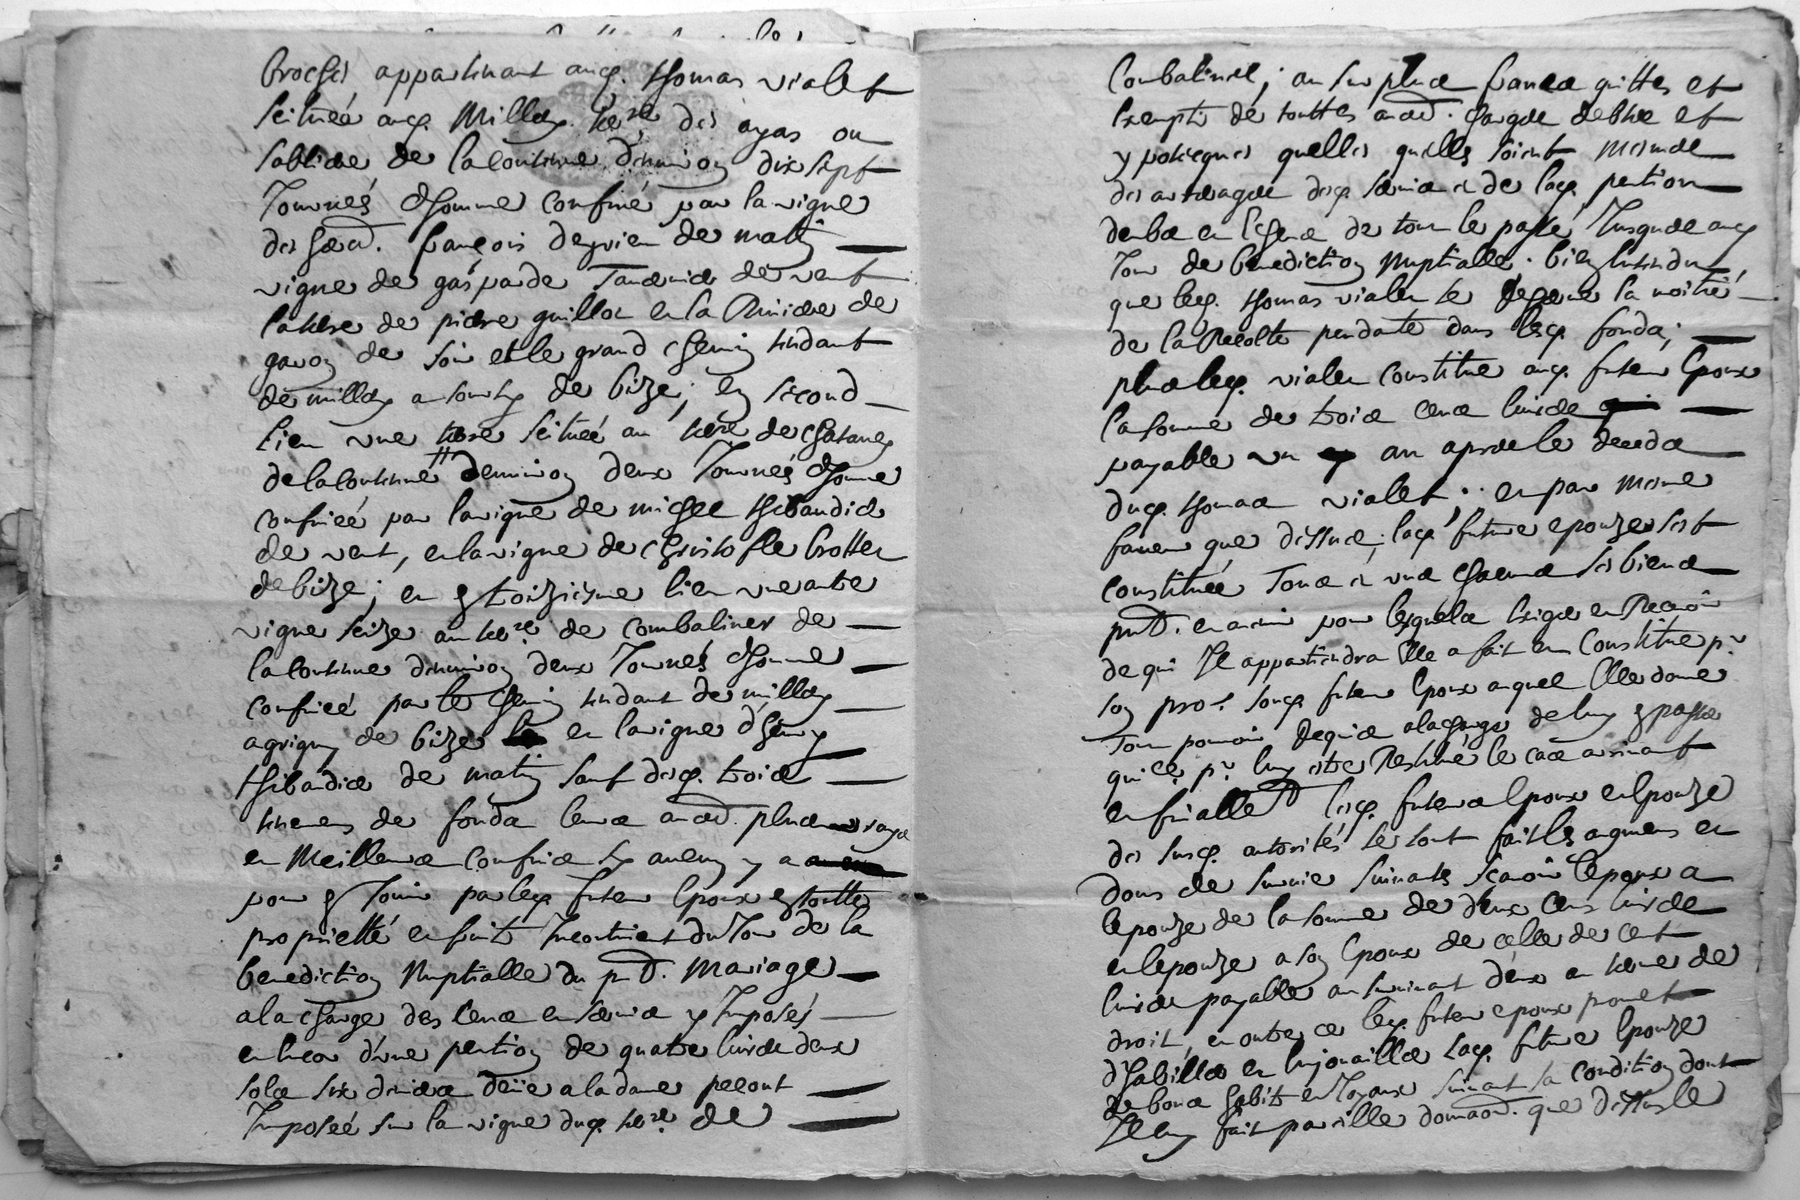 broches appartenant aud. thomas vialet
scitueé aud. Millery terre des ayas ou
sabliere de la contenue denviron dix sept
Journeés dhomme confineé par la vigne
des hoirs. françois de matin
vigne de gaspard de vent
la terre de pierre guillot et la Riviere de
garon de soir et le grand chemin tendant
de millery a de bize; en second
lieu une terre scitueé au terre de
de la contenue denviron deux Journeés dhomme
confineé par la vigne de michel thibaudier
de vent, et la vigne de christofle brottet
de bize; et troizieme lieu une autre
vigne size au terre de combalines de
la contenue denviron deux Journeés dhomme
confineé par le chemin tendant de millery
a grigny de bize et la vigne dhenry
thibaudier de matin sauf desd. trois
tenemens de fonds leurs plus vrays
et Meilleurs confins sy aucun y a
pour Jouir par led. futur Epoux toutte
proprietté et fruits Incontinent du Jour de la
benediction Nuptialle du pnt. Mariage
a la charge des Cens et servis y Imposés
et encor d'une pention de quatre livres deux
sols six deniers deüe a la dame
Imposeé sur la vigne dud. terre de
Combalines; au surplus francs quittes et
Exempts de touttes charges debtes et
ypoteques quelles quelles soient mesme
des arrerages desd. servis et de lad. pention
de tout le passé Jusques aud.
Jour de benediction Nuptialle. bien Entendu
que led. thomas vialet se reserve la moitié
de la Recolte pendante dans lesd. fonds;
plus led. vialet constitue aud. futur Epoux
la somme de trois cens livres
payable un an apres le deceds
dud. thomas vialet; et par mesme
faveur que dessus; lad. future epouze sest
constitueé Tous et uns chacuns ses biens
pnts. et a venir pour lesquels Exiger et Recevoir
de qui Il appartiendra Elle a fait et Constitue pr.
son procr. sond. futur Epoux auquel Elle donne
Tout pouvoir Requis a la charge de luy passer
quice. pr. luy estre Restitué le cas arrivant
et finallemt. lesd. futurs Epoux et Epouze
des susd. autorités se sont faits les augmens et
dons de survie suivants sçavoir l'epoux a
lepouze de la somme de deux Cens livres
et lepouze a son Epoux de celle de cent
livres payable au survivant d'eux au terme de
droit, en outre ce led. futur epoux promet
d'habiller et Enjoualler lad. future Epouze
de bons habits et Joyaux suivant sa condition dont
Il luy fait pareille que dessus le